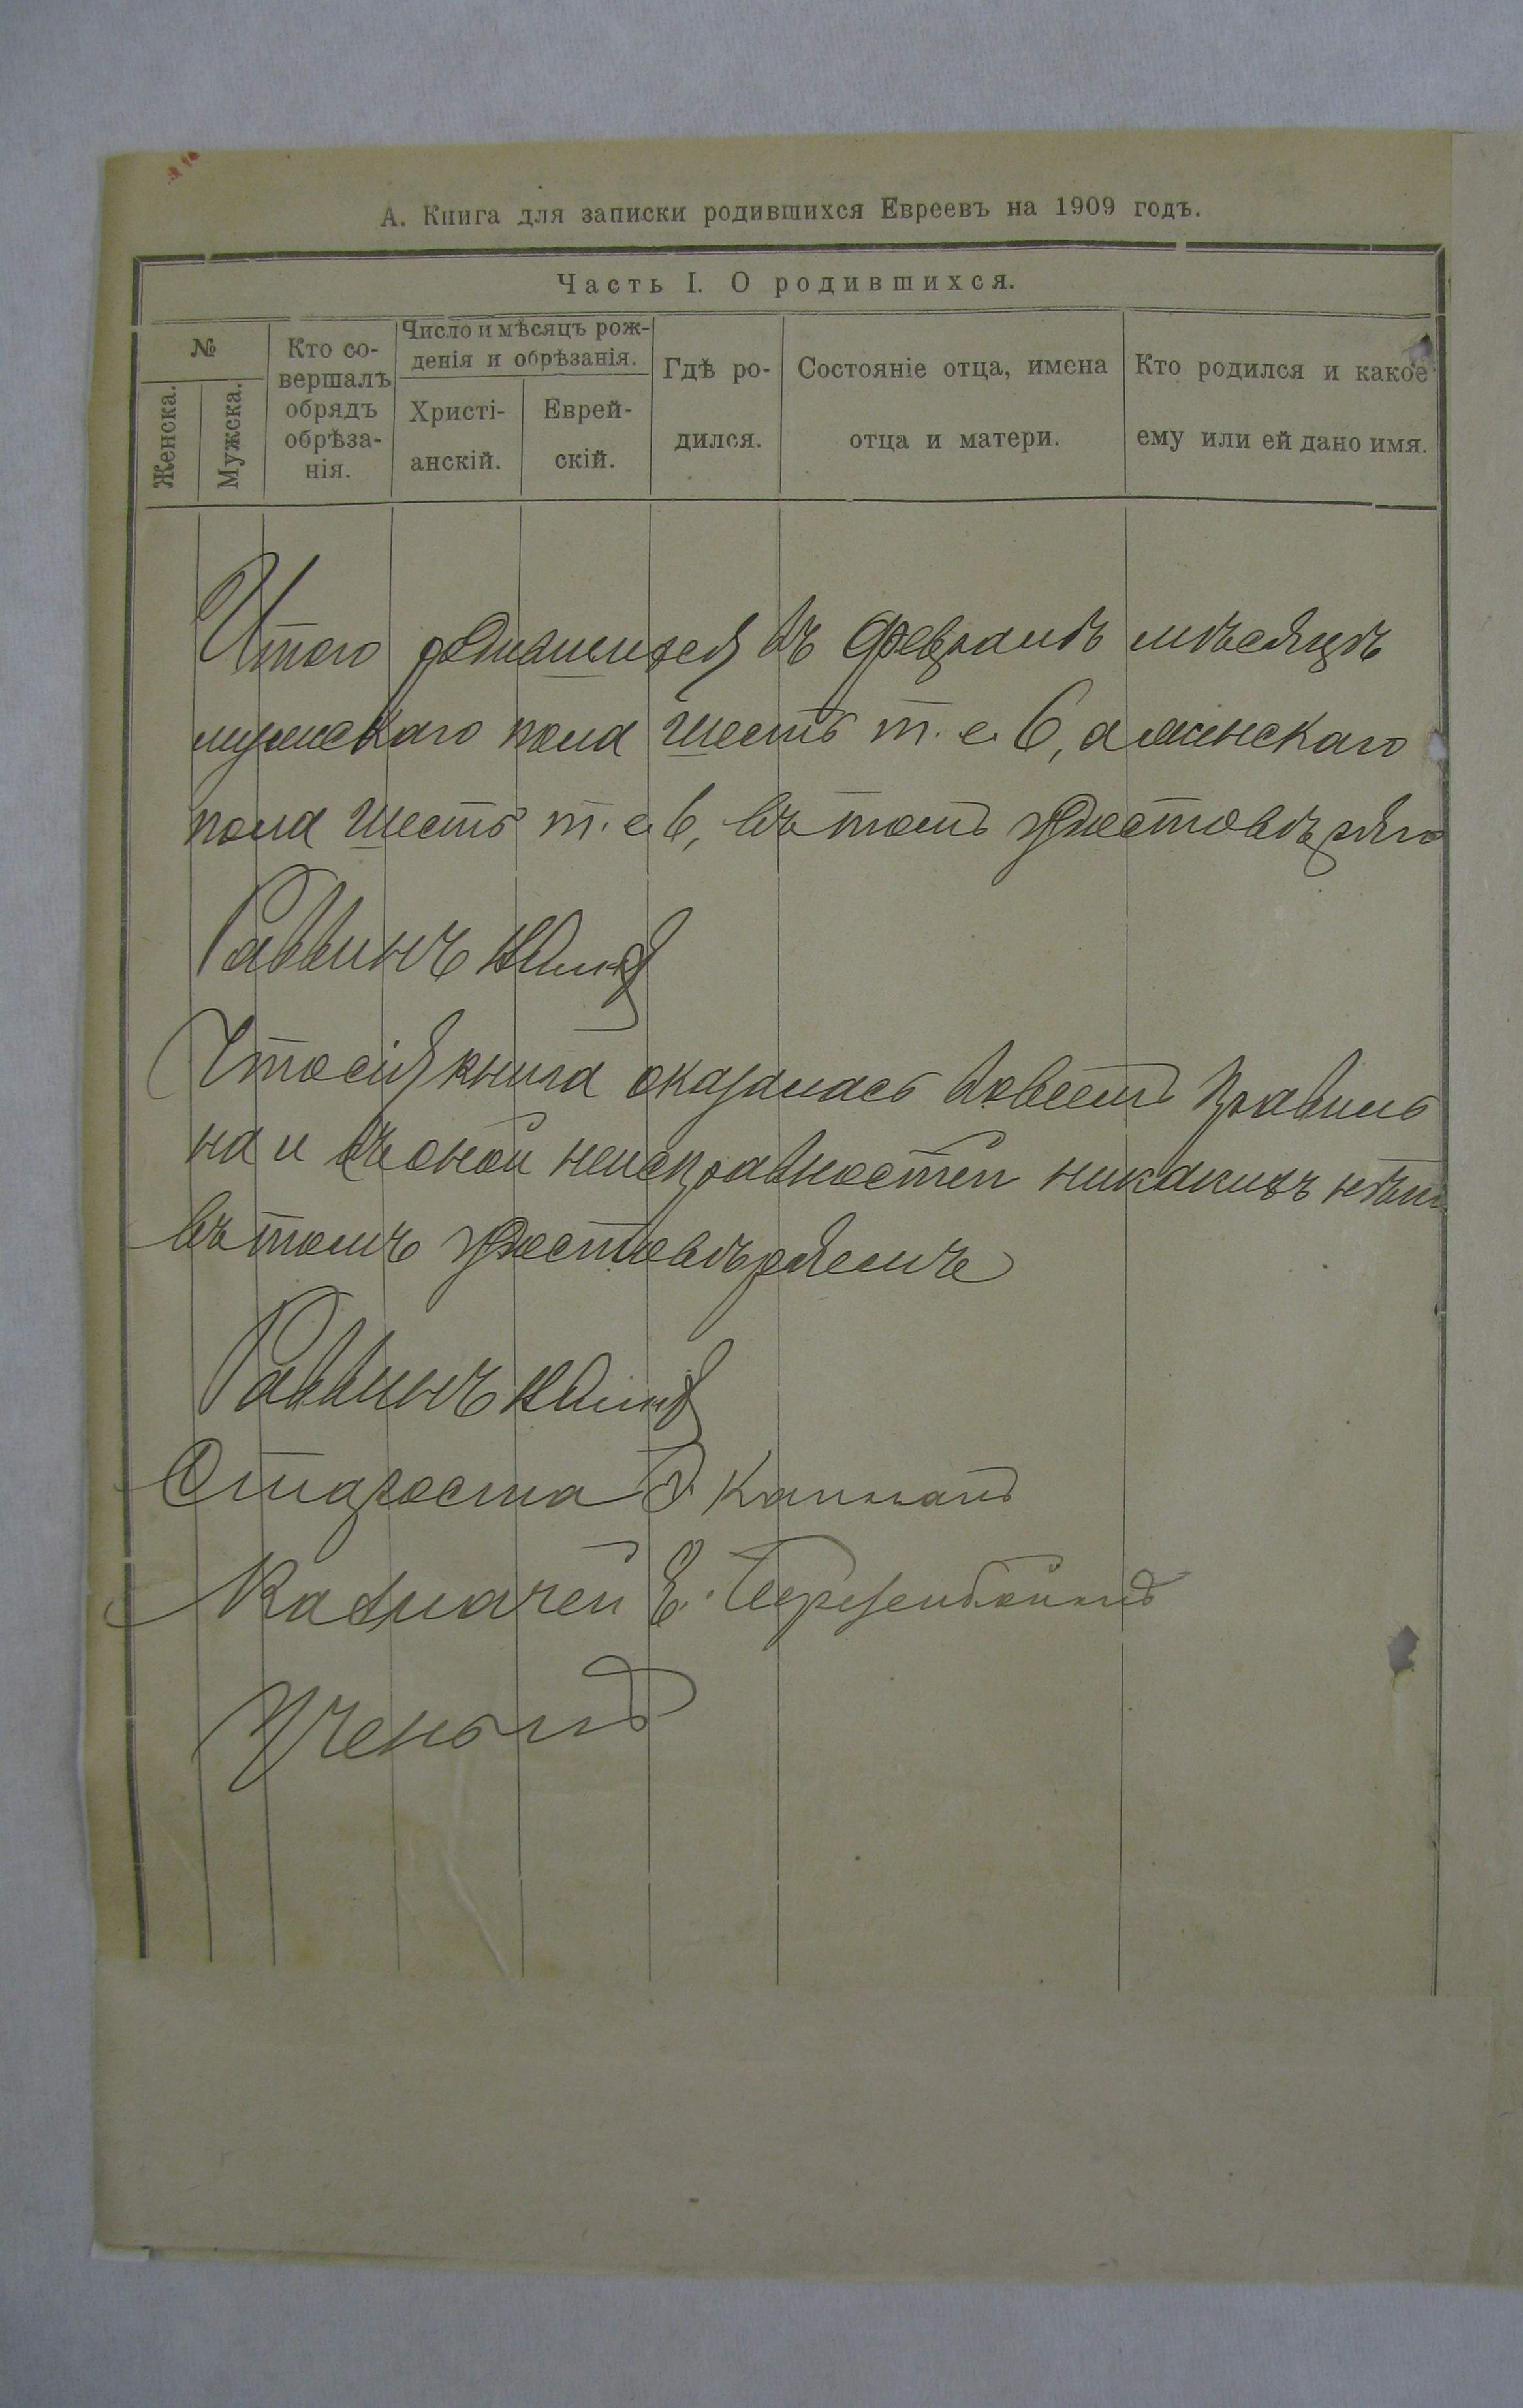 А. Книга для записки родившихся Евреевъ на 1909 годъ.
Часть I. О родившихся.
№
Женска.
Мужска.
Кто со-
вершалъ
обрядъ
обрѣза-
нія.
Число и мѣсяцъ рож-
денія и обрѣзанія.
Христі-
анскій.
Еврей-
скій.
Гдѣ ро-
дился.
Состояніе отца, имена
отца и матери.
Кто родился и какое
ему или ей дано имя.
Итого родившихся въ Февралѣ мѣсяцѣ
мужскаго пола шесть т. е. 6, а женскаго
пола шесть т. е. 6, въ томъ удостовѣряю
Раввинъ
Что сія книга оказалась вовсемъ правиль
на и въ оной неисправностей никакихъ нѣтъ
въ томъ удостовѣряемъ
Раввинъ
Староста Капланъ
Казначей Е.
Ученый